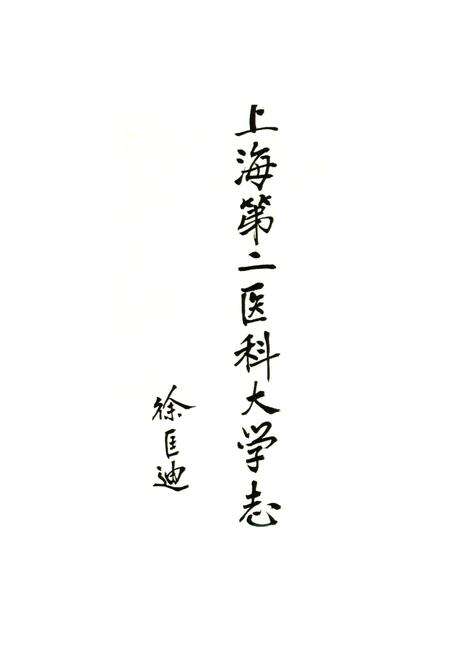 上海第二医科大学志
徐匡迪